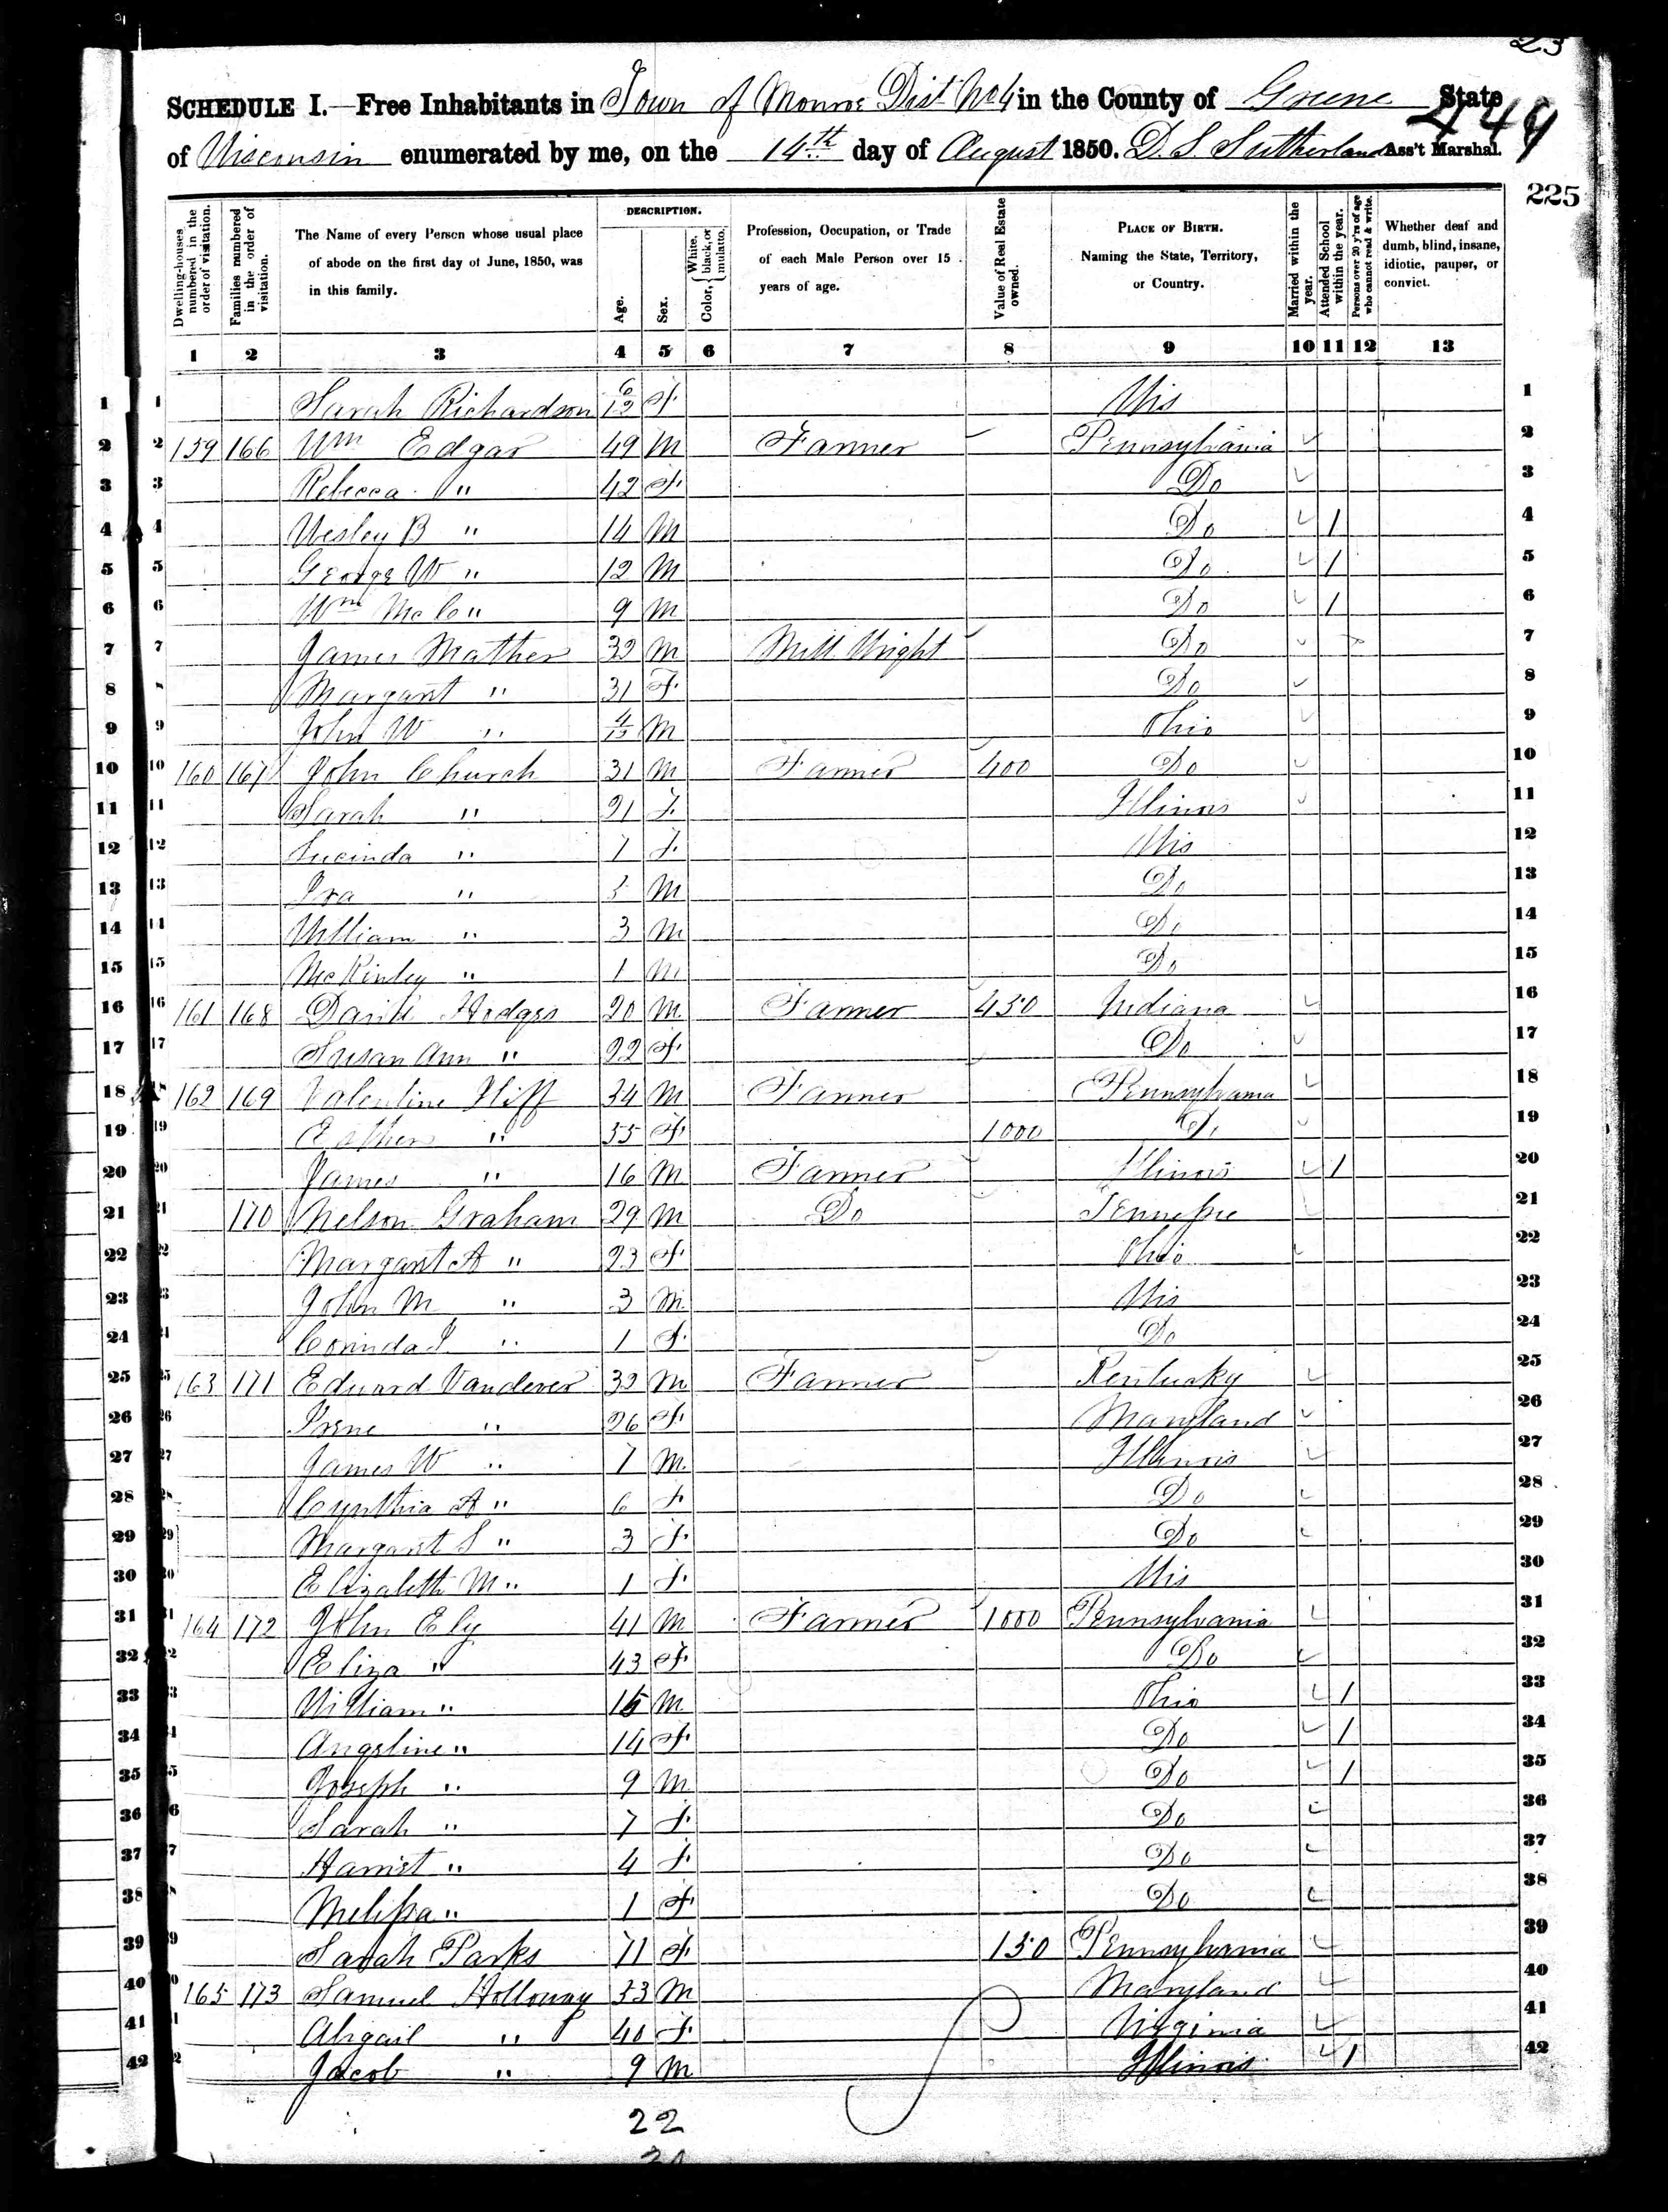 23
SCHEDULE I.—Free Inhabitants in Town of Monroe Dist No 4 in the County of Greene State
of Wisconsin enumerated by me, on the 14th day of August 1850. D. S. Sutherland Ass't Marshal.
449
225
Dwelling-houses numbered in the order of visitation.
Families numbered in the order of visitation.
The Name of every Person whose usual place of abode on the first day of June, 1850, was in this family.
DESCRIPTION.
Age.
Sex.
Color, { White, black, or mulatto.
Profession, Occupation, or Trade of each Male Person over 15 years of age.
Value of Real Estate owned.
PLACE OF BIRTH. Naming the State, Territory, or Country.
Married within the year.
Attended School within the year.
Persons over 20 y'rs of age who cannot read & write.
Whether deaf and dumb, blind, insane, idiotic, pauper, or convict.
1 2 3 4 5 6 7 8 9 10 11 12 13
1 1 Sarah Richardson 6/12 F Wis 1
2 2 159 166 Wm Edgar 49 M Farmer Pennsylvania 2
3 3 Rebecca " 42 F Do 3
4 4 Wesley B " 14 M Do 1 4
5 5 George W " 12 M Do 1 5
6 6 Wm " 9 M Do 1 6
7 7 James Mather M Mill Wright Do 7
8 Margaret " 31 F Do 8
9 9 John W " M Ohio 9
10 10 160 167 John Church 31 M Farmer 400 Do 10
11 11 Sarah " 21 F Illinois 11
12 12 Lucinda " 7 F Wis 12
13 13 Ira " 5 M Do 13
14 14 William " 3 M Do 14
15 15 McKinley " 1 M Do 15
16 16 161 168 Hodges 20 M Farmer 450 Indiana 16
17 17 Susan Ann " 22 F Do 17
18 162 169 Valentine Iliff 34 M Farmer Pennsylvania 18
19 19 Esther " 55 F 1000 Do 19
20 20 James " 16 M Farmer Illinois 1 20
21 21 170 Nelson Graham 29 M Do Tennessee 21
22 22 Margaret A " 23 F Ohio 22
23 3 John M " 3 M Wis 23
24 Corinda J " 1 F Do 24
25 25 163 171 Edward Vandever M Farmer Kentucky 25
26 26 Irene " 26 F Maryland 26
27 27 James W " 7 M Illinois 27
28 28 Cynthia A " 6 F Do 28
29 29 Margaret S " 3 F Do 29
30 30 Elizabeth M " 1 F Wis 30
31 31 164 172 John Ely 41 M Farmer 1000 Pennsylvania 31
32 2 Eliza " 43 F Do 32
33 3 William " M Ohio 1 33
34 Angeline " 14 F Do 1 34
35 5 Joseph " 9 M Do 1 35
36 6 Sarah " 7 F Do 36
37 7 Harriet " 4 F Do 37
38 Melissa " 1 F Do 38
39 9 Sarah Parks 71 F 150 Pennsylvania 39
40 0 165 173 Samuel Holloway 53 M Maryland 40
41 1 Abigail " 40 F Virginia 41
42 2 Jacob " 9 M Illinois 1 42
22